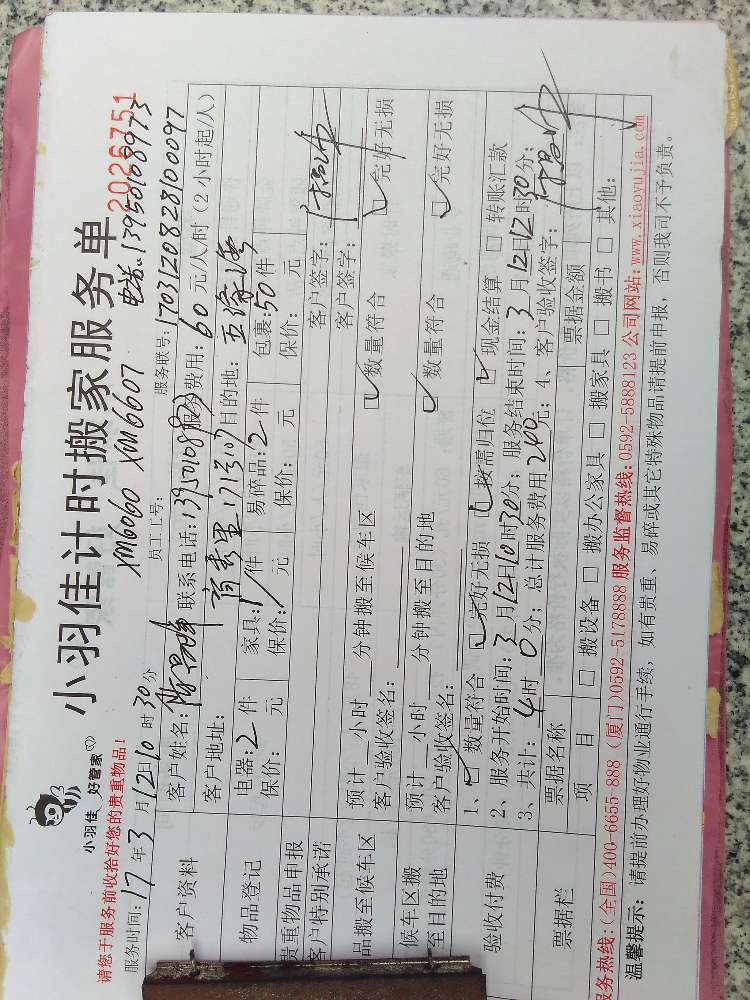 小羽佳 好管家
小羽佳计时搬家服务单
2026751
请您于服务前收拾好您的贵重物品!
XM6060 XM6607 电话: 13950108973
服务时间: 17年3月12日10时30分 员工工号: 服务联号: 1703120828100097
客户资料
客户姓名: 联系电话: 1395010893 服务费用: 60元/人/时(2小时起/人)
客户地址: 目的地:
物品登记
电器: 2件 家具: 1件 易碎品: 2件 包裹: 50件
保价: 元 保价: 元 保价: 元 保价: 元
贵重物品申报 客户签字:
客户特别承诺 客户签字:
品搬至候车区
预计 小时 分钟搬至候车区 ☑数量符合 ☑完好无损
客户验收签名:
候车区搬至目的地
预计 小时 分钟搬至目的地 ☑数量符合 ☑完好无损
客户验收签名:
验收付费
1、☑数量符合 ☑完好无损 ☑按需归位 ☑现金结算 □转账汇款
2、服务开始时间: 3月12日10时30分; 服务结束时间: 3月12日12时30分;
3、共计: 4时0分; 总计服务费用240元; 4、客户验收签字:
票据栏
票据名称 票据金额
项 目 □搬设备 □搬办公家具 □搬家具 □搬书 □其他:
服务热线: (全国)400-6655-888 (厦门)0592-5178888 服务监督热线: 0592-5888123 公司网站: www.xiaoyujia.com
温馨提示: 请提前办理好物业通行手续, 如有贵重、易碎或其它特殊物品请提前申报, 否则我司不予负责。